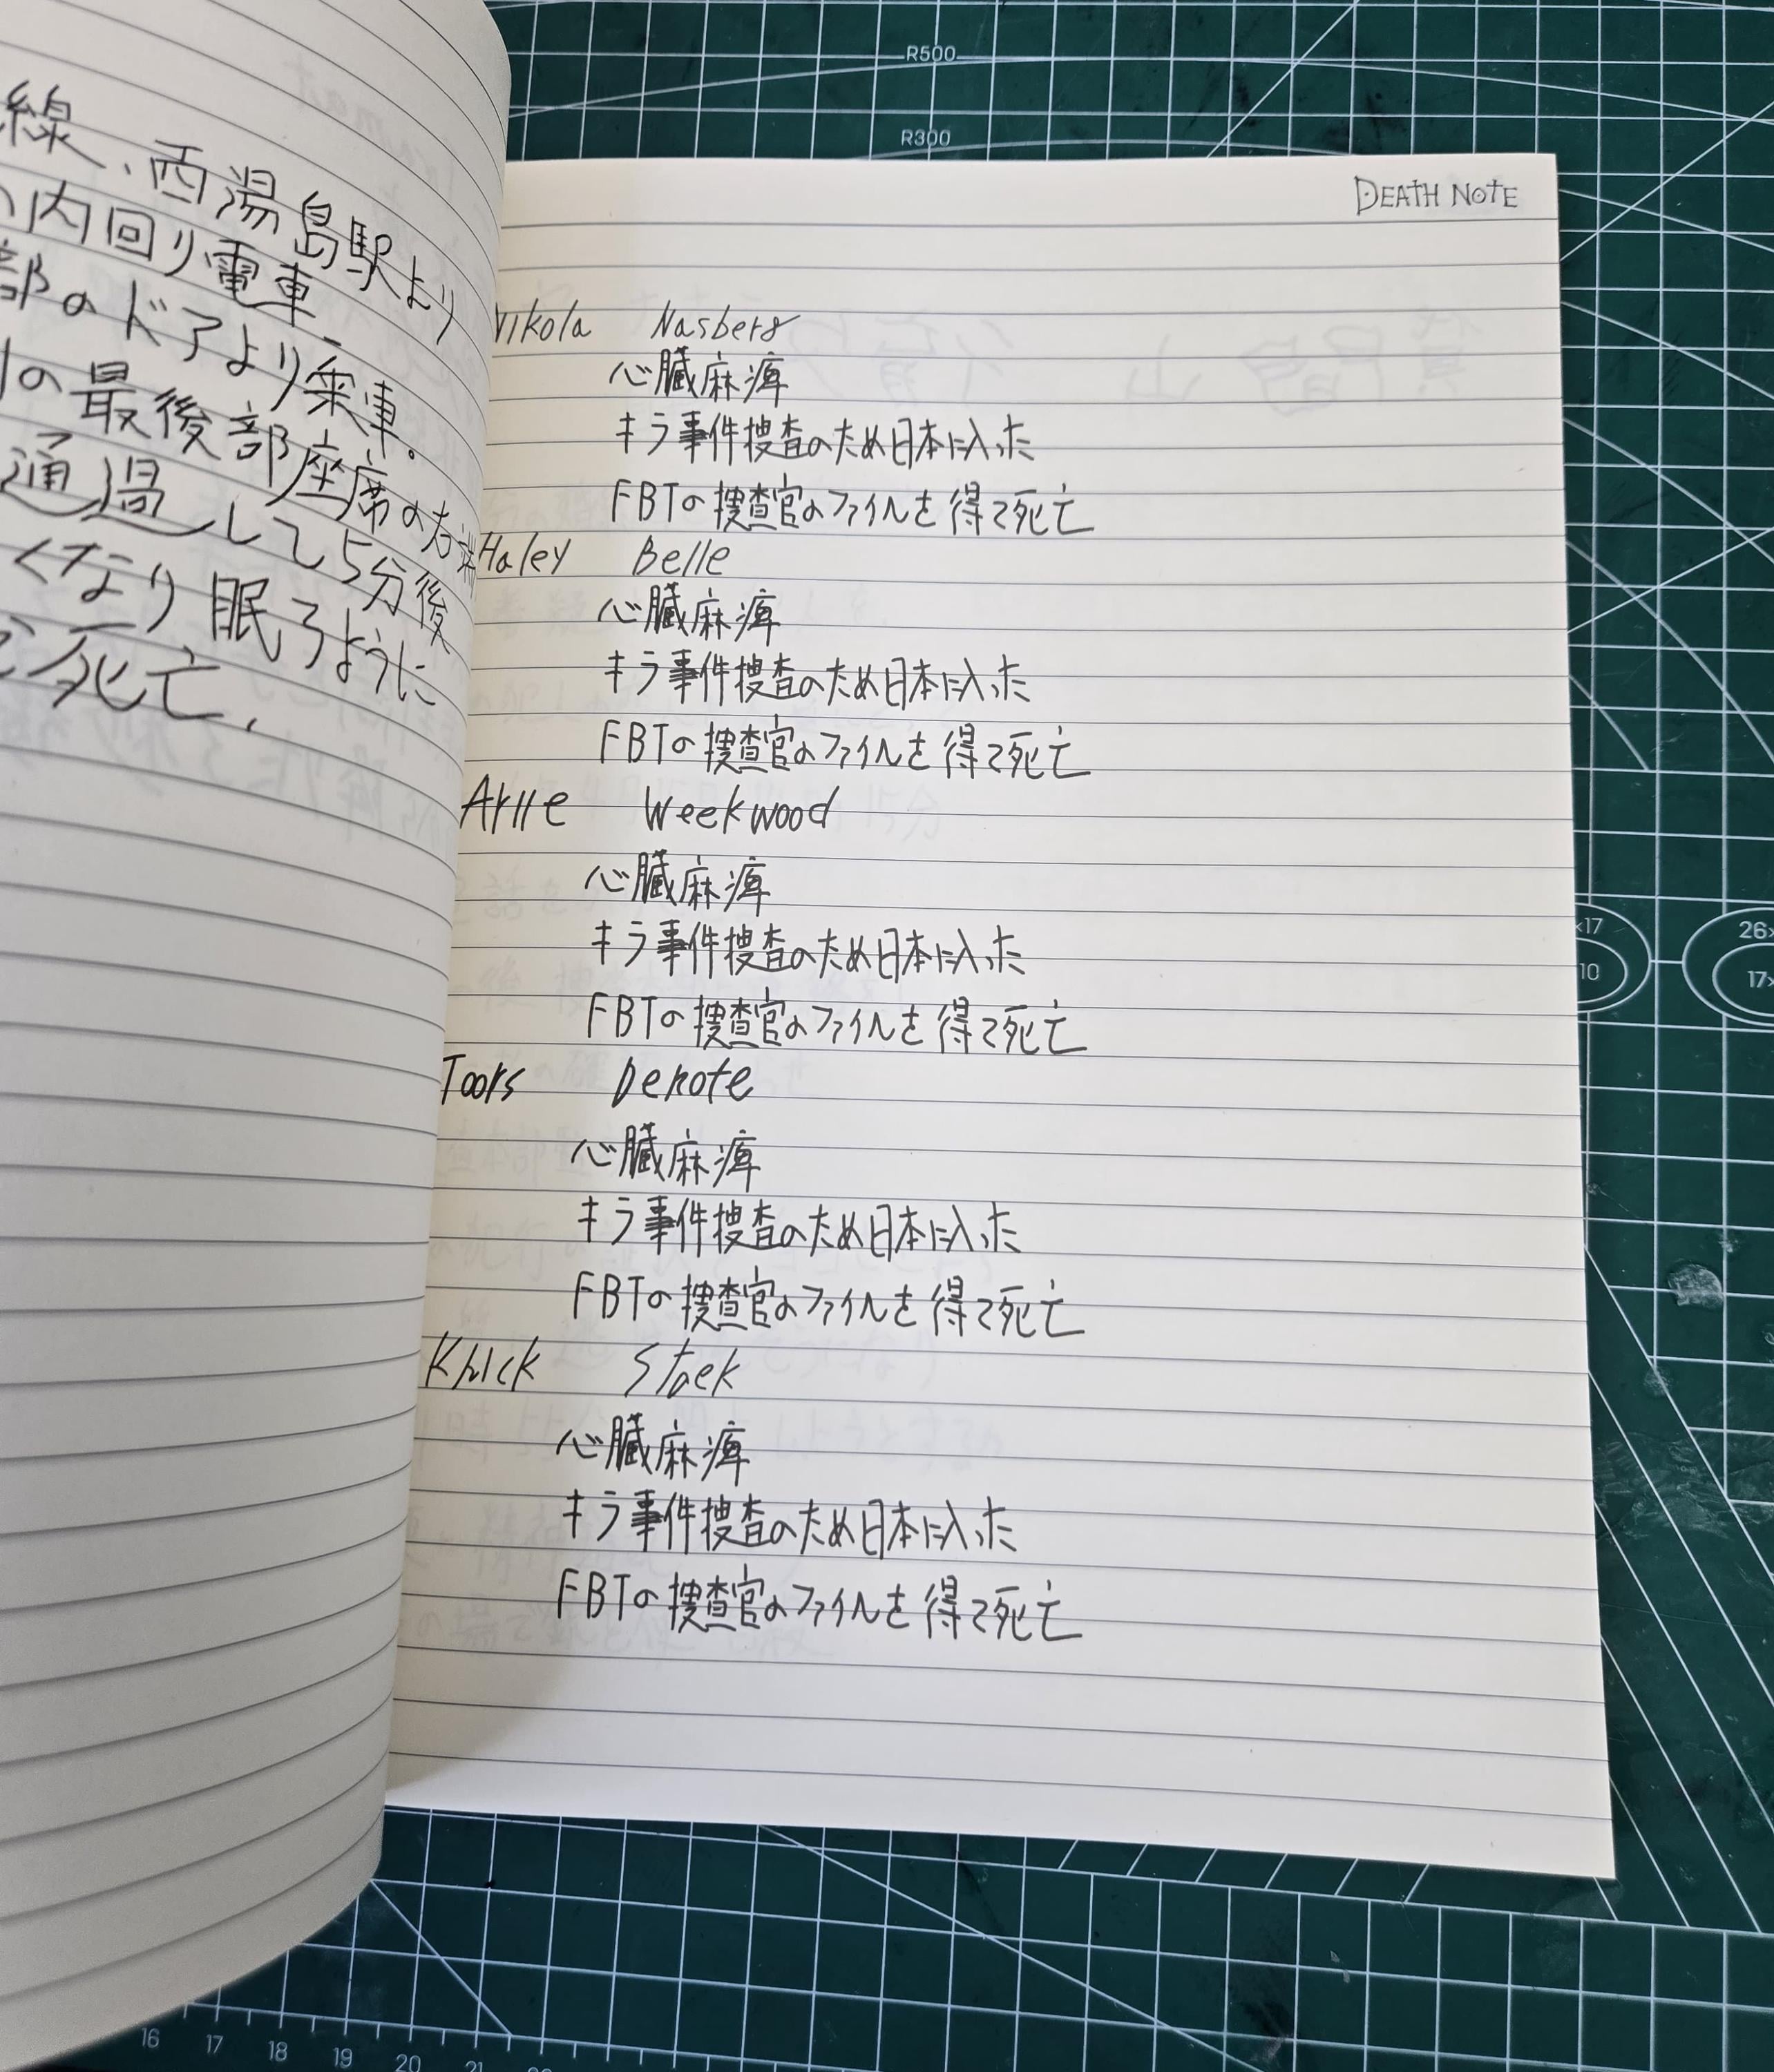 線、西湯島駅より
内回り電車、
部のドアより乗車。
の最後部座席の右端
通過して5分後
くなり眠るように
死亡.
DEATH NOTE
Nikola Nasberg
心臓麻痺
キラ事件捜査のため日本に入った
FBIの捜査官のファイルを得て死亡
Haley Belle
心臓麻痺
キラ事件捜査のため日本に入った
FBIの捜査官のファイルを得て死亡
Arire Weekwood
心臓麻痺
キラ事件捜査のため日本に入った
FBIの捜査官のファイルを得て死亡
Toors Denote
心臓麻痺
キラ事件捜査のため日本に入った
FBIの捜査官のファイルを得て死亡
Knick Staek
心臓麻痺
キラ事件捜査のため日本に入った
FBIの捜査官のファイルを得て死亡
R500
R300
×17
10
26×
17×
16 17 18 19 20 21